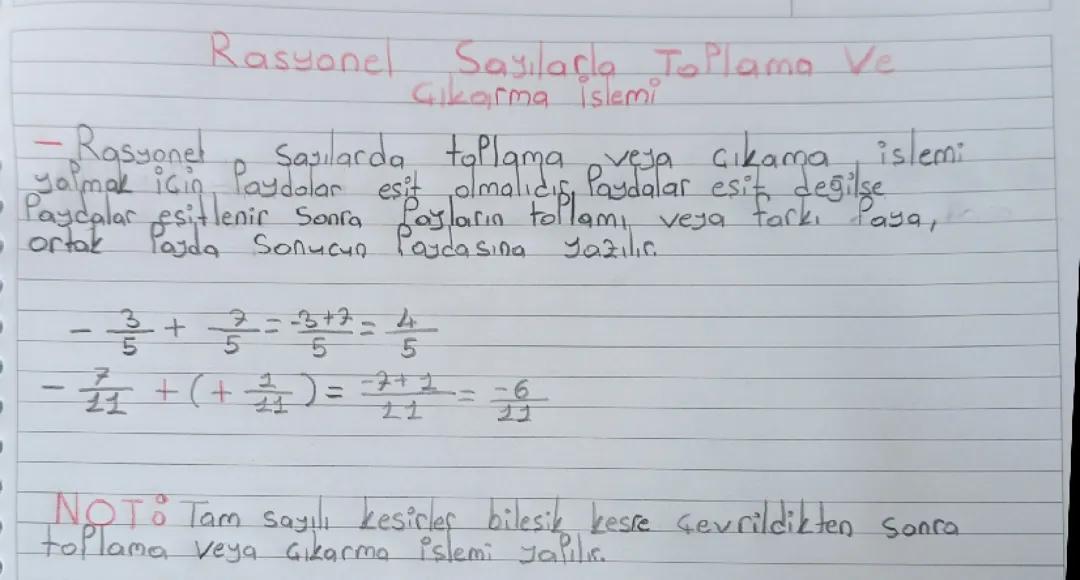 Rasyonel Sayılarla Toplama Ve
Çıkarma işlemi
- Rasyonel Sayılarda toplama veya çıkama işlemi
yapmak için Paydalar eşit olmalıdır. Paydalar eşit değilse
Paydalar eşitlenir Sonra Payların toplamı veya farkı Paya,
ortak Payda Sonucun Paydasına yazılır.
- 3/5 + 7/5 = -3+7/5 = 4/5
- 7/11 + (+ 1/11) = -7+1/11 = -6/11
NOT: Tam sayılı kesirler bileşik kesre çevrildikten sonra
toplama veya çıkarma işlemi yapılır.